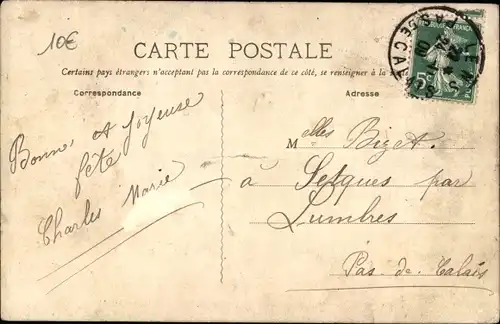 10€
CARTE POSTALE
Certains pays étrangers n'acceptant pas la correspondance de ce côté, se renseigner à la
Correspondance
Adresse
Bonne et Joyeuse
fête
Charles Marie
Melles Bizet
à Setques par
Lumbres
Pas-de-Calais
LENS
PAS DE CALAIS
5c